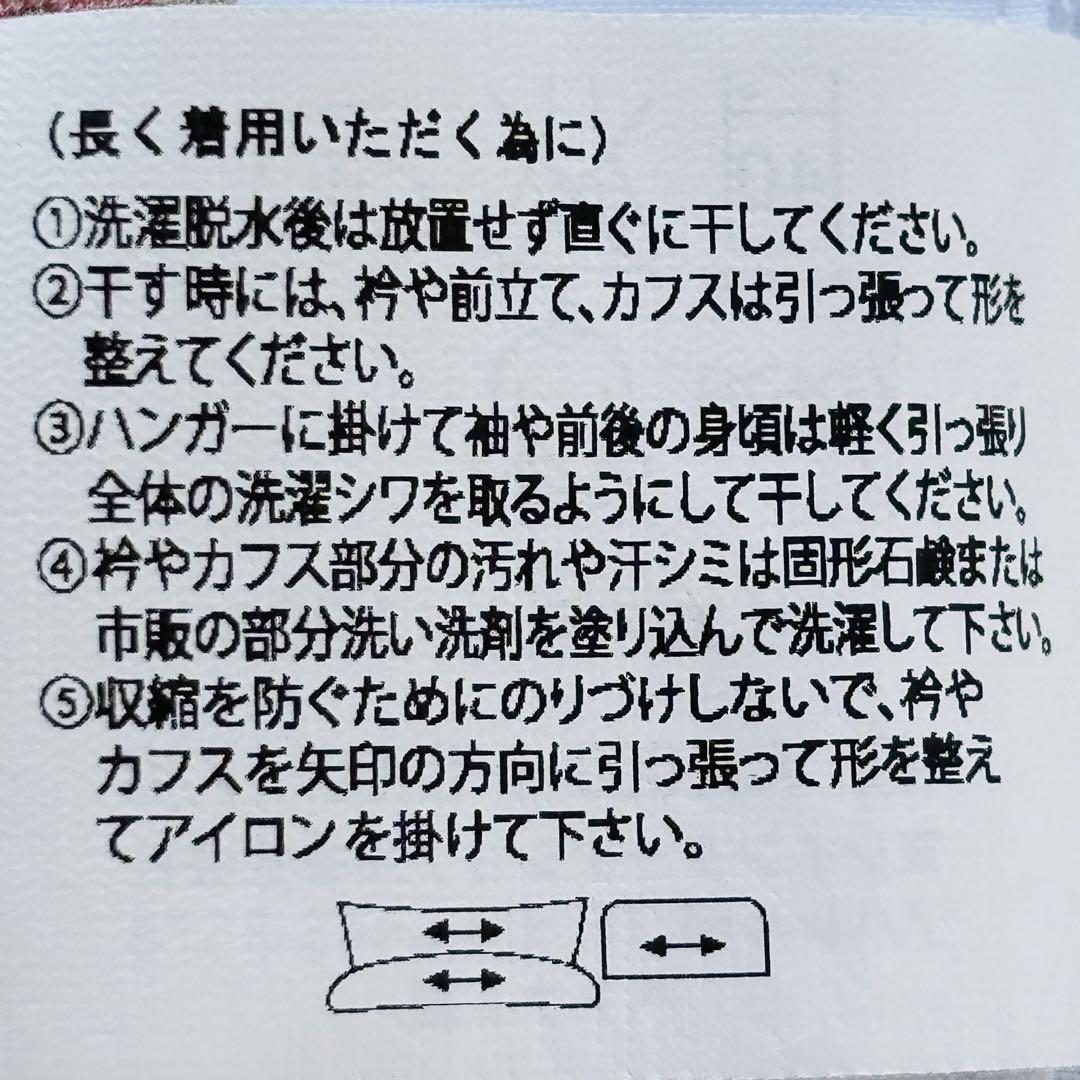 (長く着用いただく為に)
①洗濯脱水後は放置せず直ぐに干してください。
②干す時には、衿や前立て、カフスは引っ張って形を
整えてください。
③ハンガーに掛けて袖や前後の身頃は軽く引っ張り
全体の洗濯シワを取るようにして干してください。
④衿やカフス部分の汚れや汗シミは固形石鹸または
市販の部分洗い洗剤を塗り込んで洗濯して下さい。
⑤収縮を防ぐためにのりづけしないで、衿や
カフスを矢印の方向に引っ張って形を整え
てアイロンを掛けて下さい。